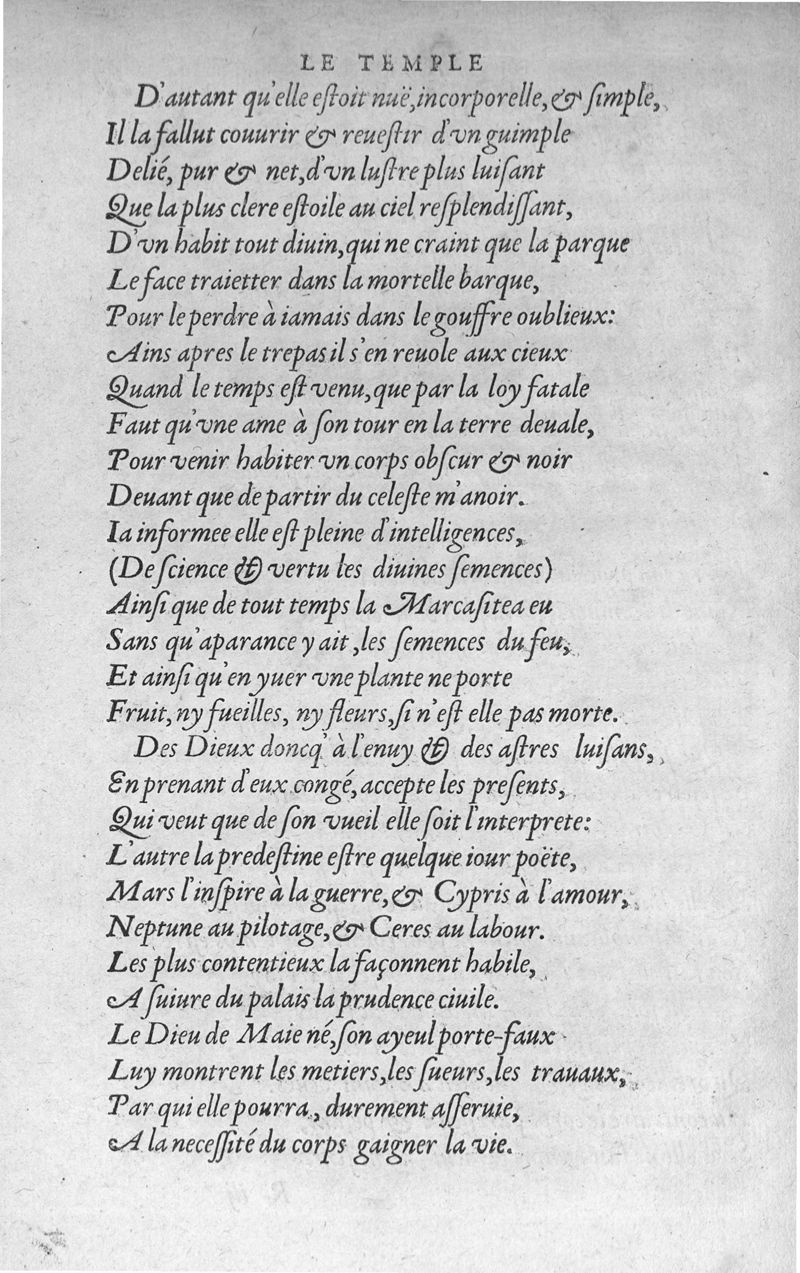 LE TEMPLE
D'autant qu'elle eſtoit nuë, incorporelle, & ſimple,
Il la fallut couurir & reueſtir d'vn guimple
Delié, pur & net, d'vn luſtre plus luiſant
Que la plus clere eſtoile au ciel reſplendiſſant,
D'vn habit tout diuin, qui ne craint que la parque
Le face traietter dans la mortelle barque,
Pour le perdre à iamais dans le gouffre oublieux:
Ains apres le trepas il s'en reuole aux cieux
Quand le temps eſt venu, que par la loy fatale
Faut qu'vne ame à ſon tour en la terre deuale,
Pour venir habiter vn corps obſcur & noir
Deuant que de partir du celeſte m'anoir.
Ia informee elle eſt pleine d'intelligences,
(De ſcience & vertu les diuines ſemences)
Ainſi que de tout temps la Marcaſitea eu
Sans qu'aparance y ait, les ſemences du feu,
Et ainſi qu'en yuer vne plante ne porte
Fruit, ny fueilles, ny fleurs, ſi n'eſt elle pas morte.
Des Dieux doncq' à l'enuy & des aſtres luiſans,
En prenant d'eux congé, accepte les preſents,
Qui veut que de ſon vueil elle ſoit l'interprete:
L'autre la predeſtine eſtre quelque iour poëte,
Mars l'inſpire à la guerre, & Cypris à l'amour,
Neptune au pilotage, & Ceres au labour.
Les plus contentieux la façonnent habile,
A ſuiure du palais la prudence ciuile.
Le Dieu de Maie né, ſon ayeul porte-faux
Luy montrent les metiers, les ſueurs, les trauaux,
Par qui elle pourra, durement aſſeruie,
A la neceſſité du corps gaigner la vie.